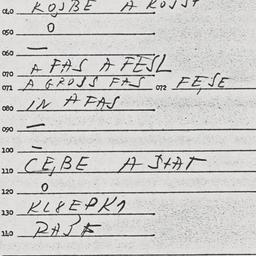 040 KOSBE A KOSST
050 O
060 —
070 A FAS A FESL
071 A GROSS FAS 072 FE,SE
080 IN A FAS
090 —
100 —
110 CE,BE A STAT
120 O
130 KL8EPK1
140 RASE